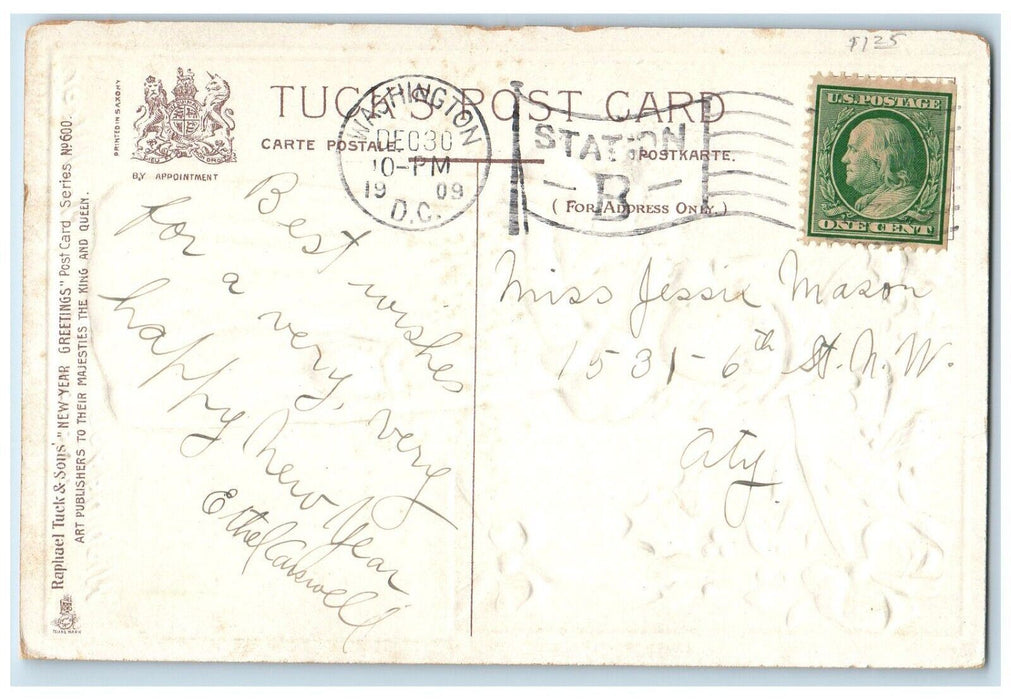 $1.25
TUCK'S POST CARD
CARTE POSTALE.
POSTKARTE.
(FOR ADDRESS ONLY.)
BY APPOINTMENT
PRINTED IN SAXONY
Raphael Tuck & Sons' "NEW YEAR GREETINGS" Post Card Series No 600.
ART PUBLISHERS TO THEIR MAJESTIES THE KING AND QUEEN.
TRADE MARK
WASHINGTON
DEC 30
10-PM
19 09
D.C.
STATION
B
U.S. POSTAGE
ONE CENT
Best wishes
for a very, very
happy New Year
Ethel Carswell
Miss Jessie Mason
1531-6th St. N.W.
City.